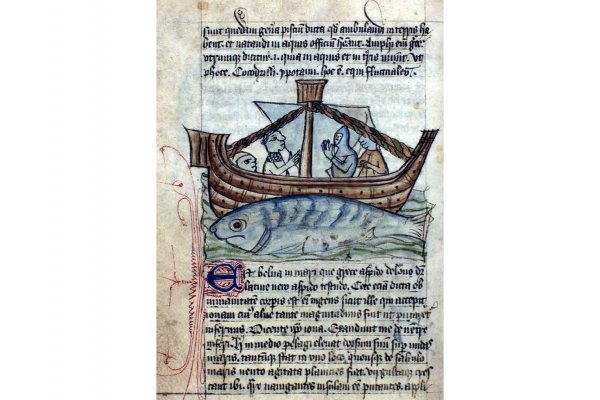 sunt quedam gen̄a pisciū dicta qđ ambulandi in terris ha
bent. et natandi in aquis officiū h̄ant. Amphi em̄ grec̄
utrumque dicitur .i. quia in aquis et in t̄ris uiuūt. ut
phoce. Cocodrilli. ypotami. hoc ē. equi fluctuales.
Est belua in mari que grece aspido delone dr̄
latine uero aspido testudo. Cete eciā dicta ob
inmanitatem corporis est eī ingens sicut ille qui excepit
ionam cuiꝰ aluꝰ tante magnitudinis fuit ut putaret̄
infernus. Dicente ip̄o iona. Exaudiuit me de uentre
inferi. H̄ in medio pelagi eleuat dorsum suū sup̄ undas
maris. tantūque stat in uno loco. quousque de sabulo
maris uento agitata planicies fiat. uirgultaque cres
cant ibi. Qr̄e nauigantes insulam eē putantes. appli